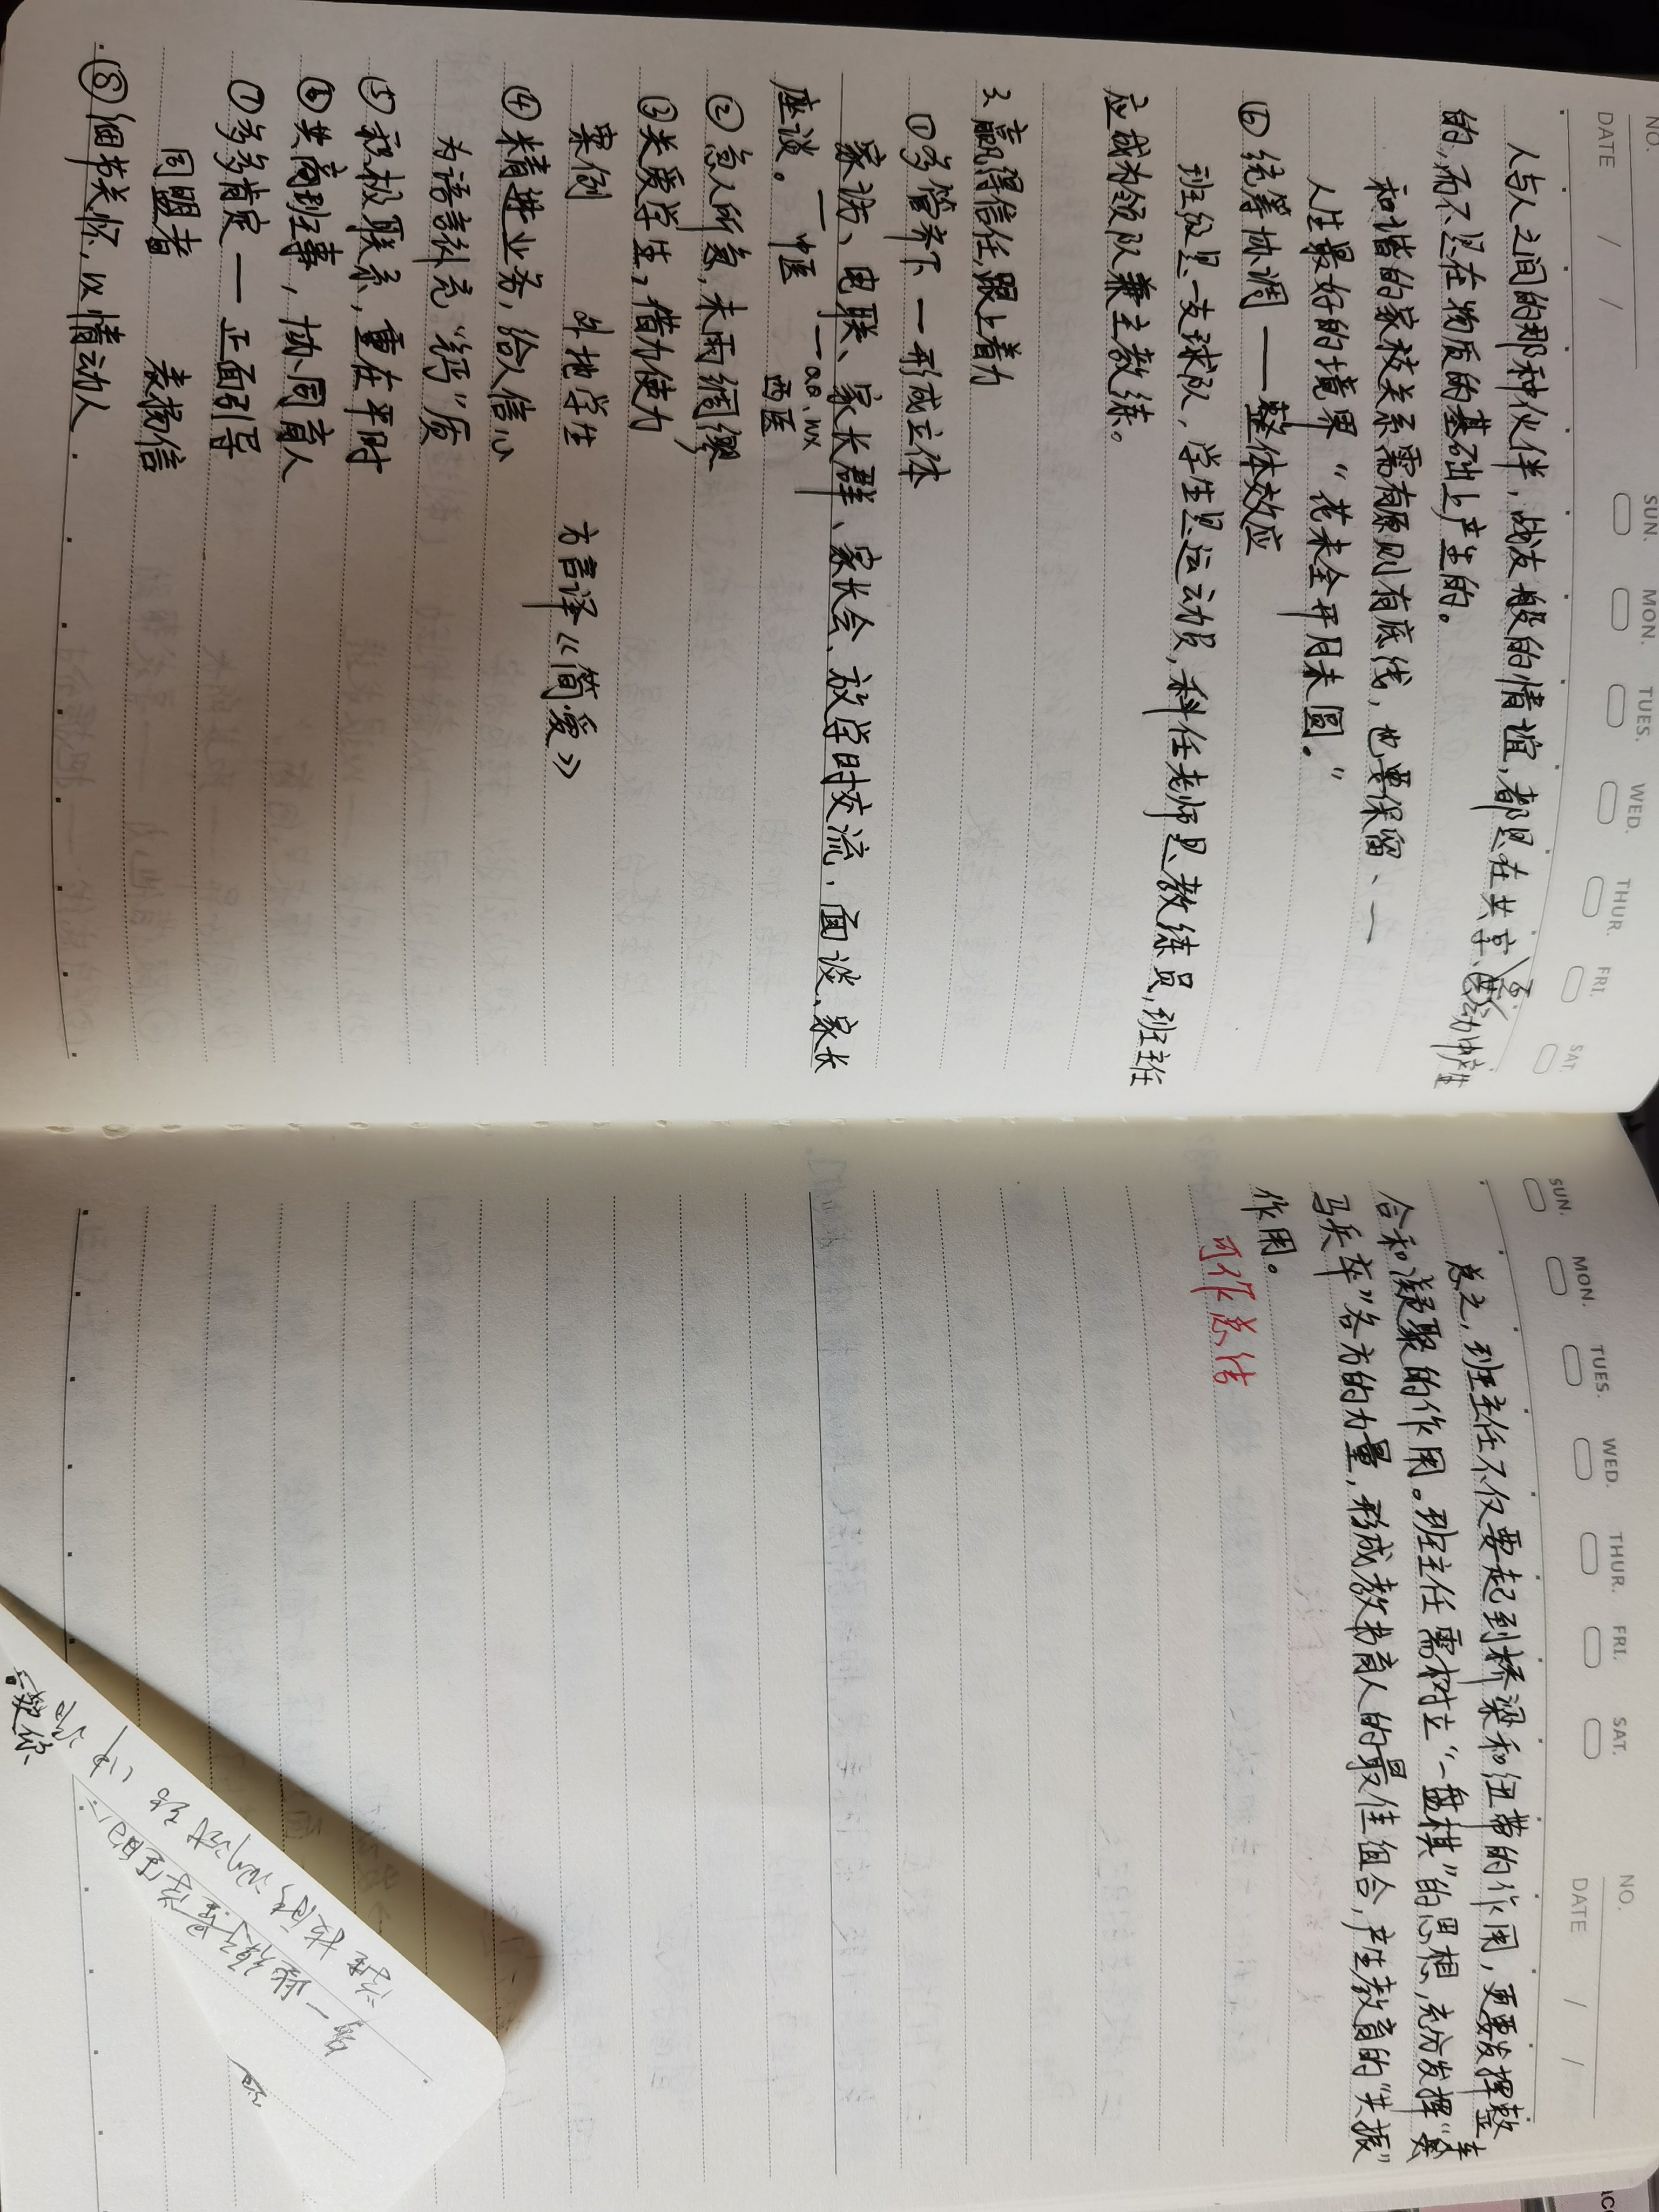 NO.
DATE / /
SUN. MON. TUES. WED. THUR. FRI. SAT.
人与人之间的那种伙伴，战友般的情谊，都是在共享、互动中产生
的，而不是在物质的基础上产生的。
和谐的家校关系需有原则有底线，也要保留、一
人生最好的境界“花未全开月未圆。”
⑥ 统筹协调 —— 整体效应
班级是一支球队，学生是运动员，科任老师是教练员，班主任
应成为领队兼主教练。
3、赢得信任，跟上着力
①多管齐下 — 形成立体
家访、电联、家长群、家长会、放学时交流、面谈、家长
— QQ、WX
座谈。 — 中医 西医
②急人所急，未雨绸缪
③关爱学生，借力使力
案例 外地学生 方言译《简爱》
④精进业务，给人信心
为语言补充“钙”质
⑤积极联系，重在平时
⑥共商班事，协同育人
⑦多多肯定 — 正面引导
同盟者 表扬信
⑧细节关怀，以情动人
SUN. MON. TUES. WED. THUR. FRI. SAT.
NO.
DATE / /
总之，班主任不仅要起到桥梁和纽带的作用，更要发挥整
合和凝聚的作用。班主任需树立“一盘棋”的思想，充分发挥“车
马兵卒”各方的力量，形成教书育人的最佳组合，产生教育的“共振”
作用。
可作总结